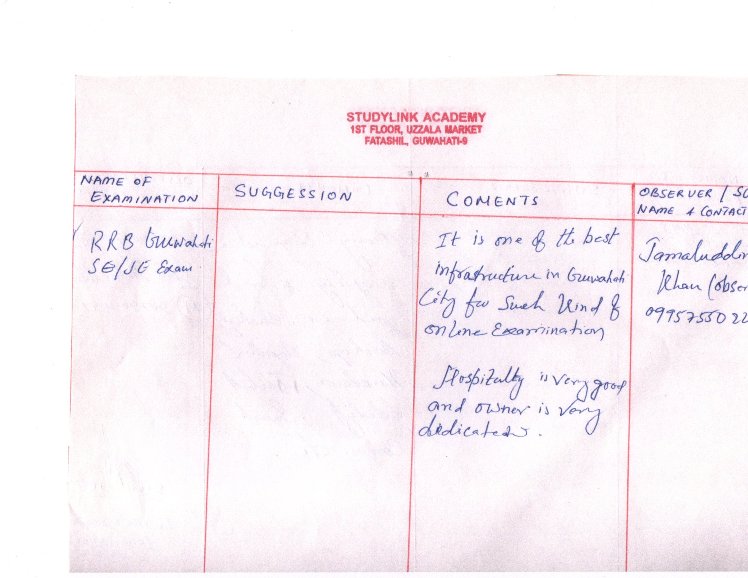 STUDYLINK ACADEMY
1ST FLOOR, UZZALA MARKET
FATASHIL, GUWAHATI-9
NAME OF
EXAMINATION
SUGGESSION
COMENTS
OBSERVER / SC
NAME & CONTACT
RRB Guwahati
SE/JE Exam
It is one of the best
infrastructure in Guwahati
City for Such Kind of
online Examination
Hospitality is very good
and owner is very
dedicated.
Jamaluddin
Khan (obser
09957550 22